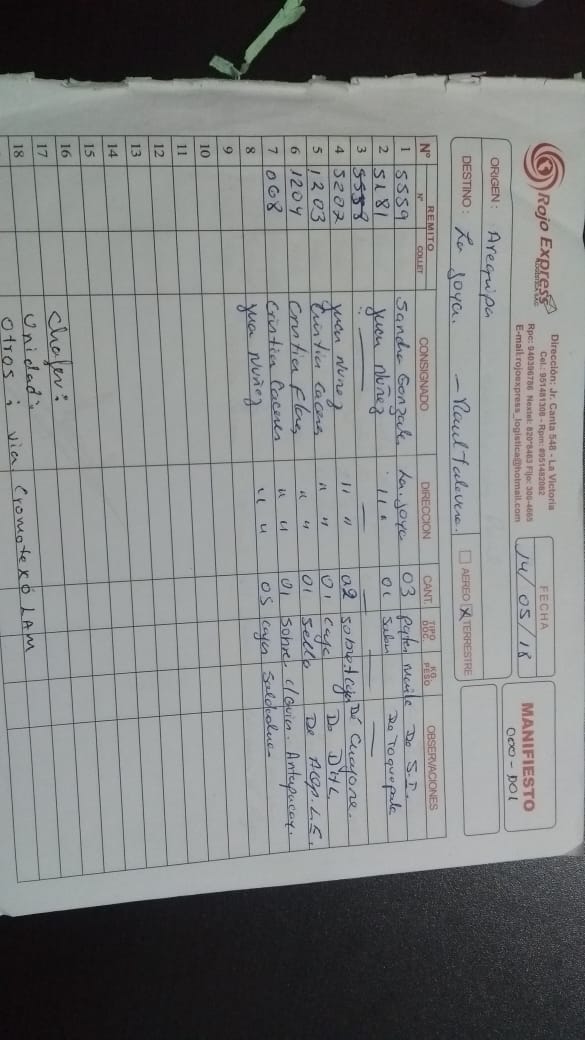 Rojo Express
LOGISTICA SAC
Dirección: Jr. Canta 548 - La Victoria
Cel.: 951481308 - Rpm: #951482082
Rpc: 940396786 Nextel: 820*8463 Fijo: 300-4665
E-mail:rojoexpress_logistica@hotmail.com
FECHA
14/05/18
MANIFIESTO
000-001
ORIGEN: Arequipa
DESTINO: La Joya. - Raul Talavera.
AEREO X TERRESTRE
Nº REMITO Nº COLLET CONSIGNADO DIRECCION CANT. TIPO DOC KG. PESO OBSERVACIONES
1 5559 Sandra Gonzales La Joya 03 De S.I.
2 5181 Juan Nuñez " " 01 De Toquepala
3 5558
4 5202 Juan Nuñez " " 02 De Cuajone.
5 1203 Cristia Caceres " " 01 caja De DHL
6 1204 Cristia Flores " " 01 sello De
7 068 Cristia Caceres " " 01 sobre Antapacay.
8 Juan Nuñez " " 05 cajas
9
10
11
12
13
14
15
16 Chofer:
17 Unidad:
18 Otros: via Cromotex ó LAM